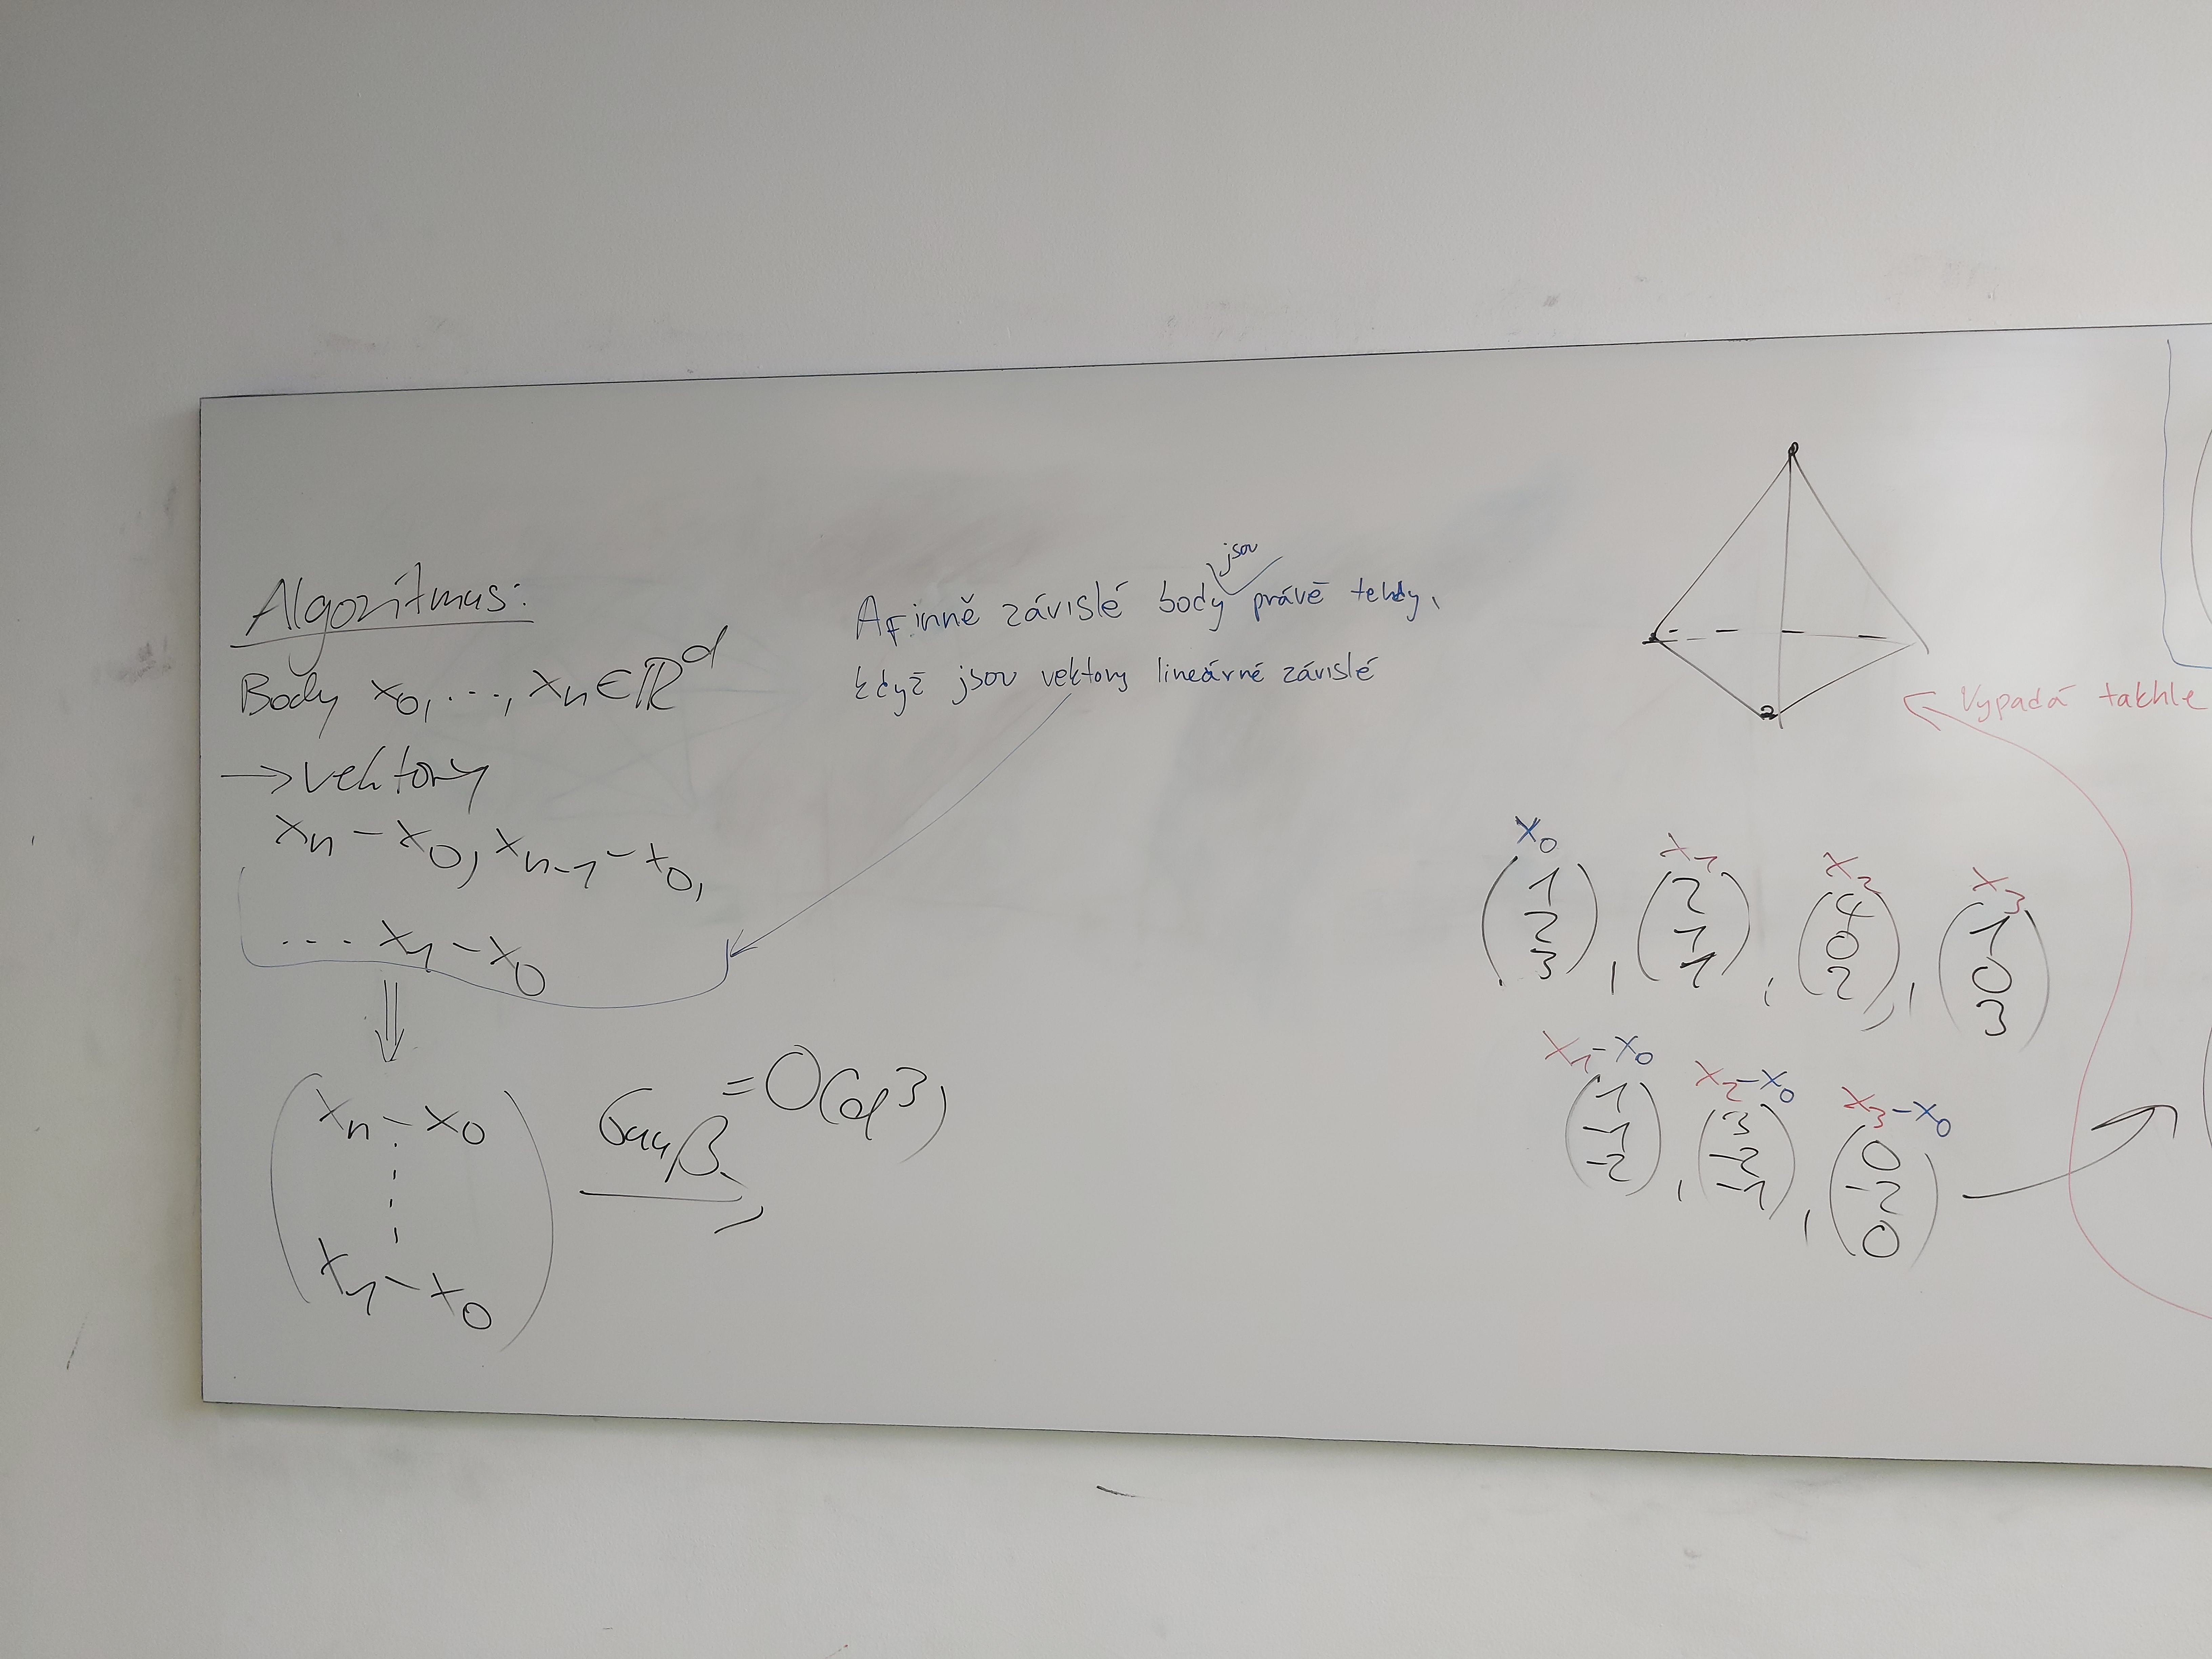 Algoritmus:
Body x₀, ..., xₙ ∈ ℝᵈ
→ vektory
xₙ - x₀, xₙ₋₁ - x₀,
... x₁ - x₀
⇓
( xₙ - x₀
⋮
x₁ - x₀ )
Gauß = O(d³)
jsou
Afinně závislé body právě tehdy,
když jsou vektory lineárně závislé
Vypadá takhle
x₀ x₁ x₂ x₃
(1 2 3), (2 1 1), (4 0 2), (1 0 3)
x₁-x₀ x₂-x₀ x₃-x₀
(1 -1 -2), (3 -2 -1), (0 -2 0)